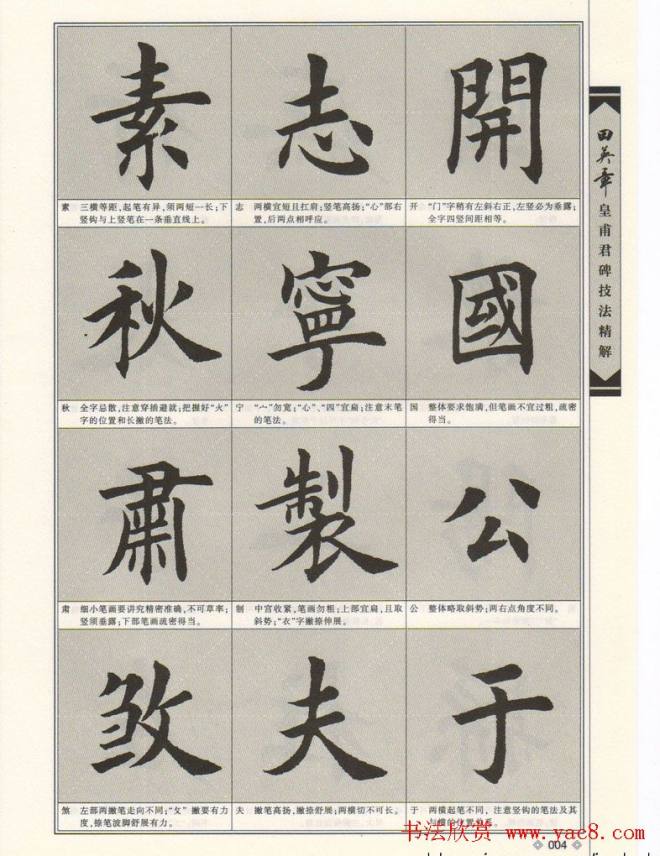 素
素 三横等距,起笔有异,须两短一长;下
竖钩与上竖笔在一条垂直线上。
志
志 两横宜短且扛肩;竖笔高扬;“心”部右
置,后两点相呼应。
開
开 “门”字稍有左斜右正,左竖必为垂露;
全字四竖间距相等。
秋
秋 全字忌散,注意穿插避就;把握好“火”
字的位置和长撇的笔法。
寧
宁 “宀”勿宽;“心”、“四”宜扁;注意末笔
的笔法。
國
国 整体要求饱满,但笔画不宜过粗,疏密
得当。
肅
肃 细小笔画要讲究精密准确,不可草率;
竖须垂露;下部笔画疏密得当。
製
制 中宫收紧,笔画勿粗;上部宜扁,且取
斜势;“衣”字撇捺伸展。
公
公 整体略取斜势;两右点角度不同。
煞
煞 左部两撇笔走向不同;“攵”撇要有力
度,捺笔波脚舒展有力。
夫
夫 撇笔高扬,撇捺舒展;两横切不可长。
于
于 两横起笔不同,注意竖钩的笔法及其
与横的位置关系。
田英章
皇甫君碑技法精解
书法欣赏 www.yac8.com
004